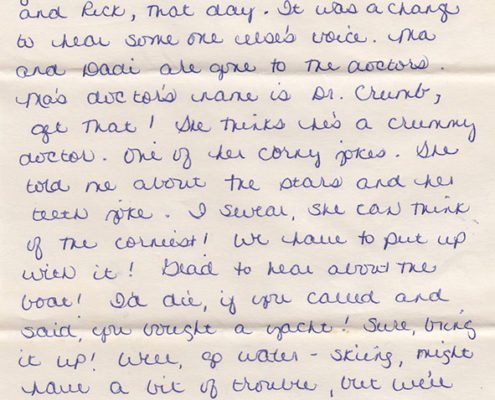 and Rick, that day. It was a change
to hear some one else's voice. Ma
and Dadi are gone to the doctors.
Ma's doctor's name is Dr. Crumb,
get that! She thinks he's a crummy
doctor. One of her corny jokes. She
told me about the stars and her
teeth joke. I swear, she can think
of the corniest! We have to put up
with it! Dead to hear about the
boat! I'd die, if you called and
said, you bought a yacht! Sure, bring
it up! Well, go water-skiing, might
have a bit of trouble, but we'll